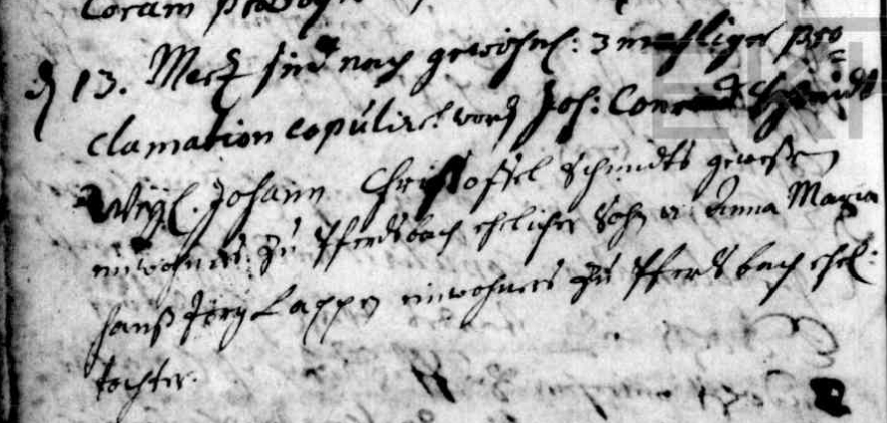 Coram
d 13. Mertz sind nach gewohnl: 3 mahliger Pro=
clamation copulirt word Joh: Conrad Schmidt
Weyl. Johann Christoffel Schmidts gewesen
einwohners zu Pferdsbach ehelicher Sohn u: Anna Maria
hanß Jörg Lappen einwohners zu Pferdsbach ehel:
tochter.